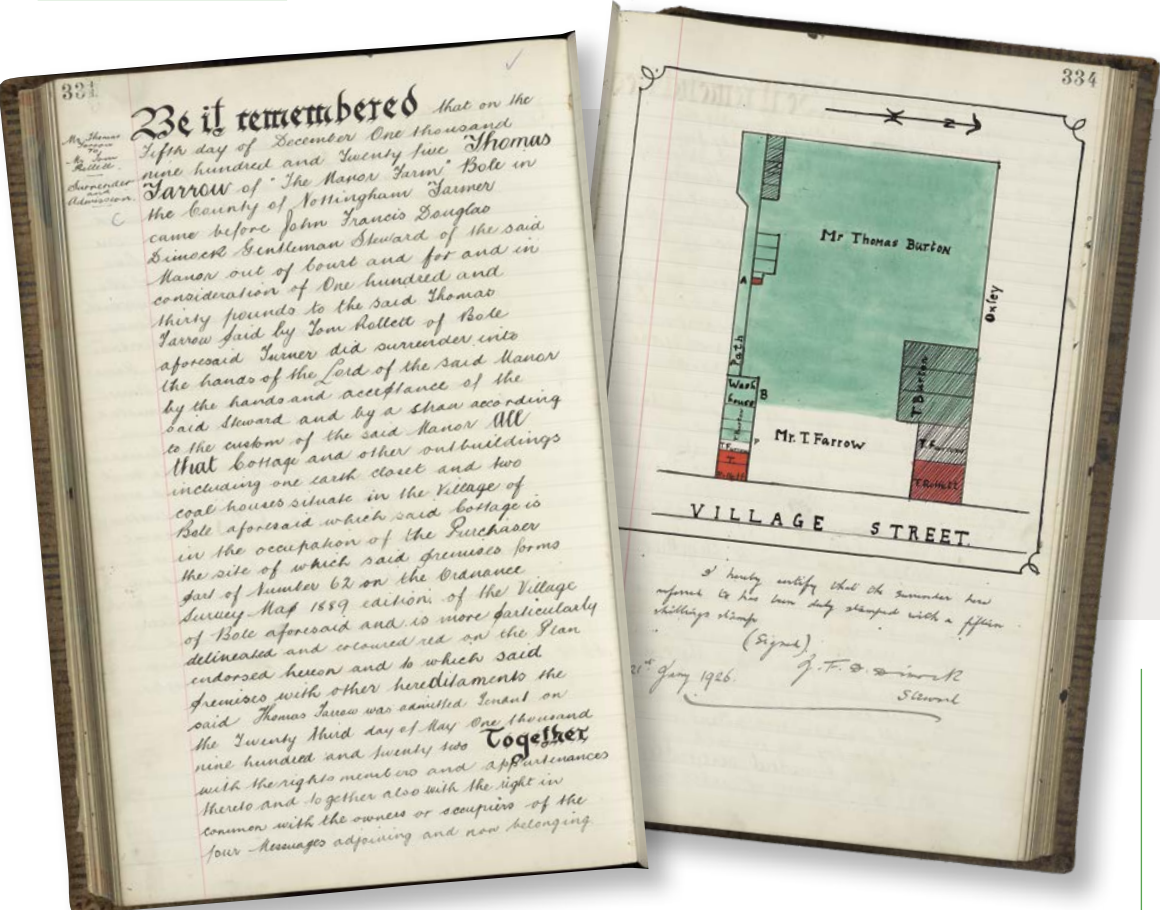 331
Mr Thomas
Farrow
to
Mr Tom
Rollett
Surrender
and
Admission.
Be it remembered that on the
Fifth day of December One thousand
nine hundred and Twenty five Thomas
Farrow of "The Manor Farm" Bole in
the County of Nottingham Farmer
came before John Francis Douglas
Dimock Gentleman Steward of the said
Manor out of Court and for and in
consideration of One hundred and
thirty pounds to the said Thomas
Farrow paid by Tom Rollett of Bole
aforesaid Turner did surrender into
the hands of the Lord of the said Manor
by the hands and acceptance of the
said Steward and by a straw according
to the custom of the said Manor All
that Cottage and other outbuildings
including one earth closet and two
coal houses situate in the Village of
Bole aforesaid which said Cottage is
in the occupation of the Purchaser
the site of which said premises forms
part of Number 62 on the Ordnance
Survey Map 1889 edition, of the Village
of Bole aforesaid and is more particularly
delineated and coloured red on the Plan
endorsed hereon and to which said
premises with other hereditaments the
said Thomas Farrow was admitted Tenant on
the Twenty third day of May One thousand
nine hundred and twenty two Together
with the rights members and appurtenances
thereto and together also with the right in
common with the owners or occupiers of the
four Messuages adjoining and now belonging
334
N
Mr Thomas Burton
Oxley
A
Path
Wash
house
B
T Burton
T Burton
P
Mr. T. Farrow
T. Farrow
T. Farrow
T.
Rollett
T. Rollett
VILLAGE STREET.
I hereby certify that the surrender here
referred to has been duly stamped with a fifteen
shillings stamp
(Signed)
J. F. D. Dimock
21st Jany 1926.
Steward